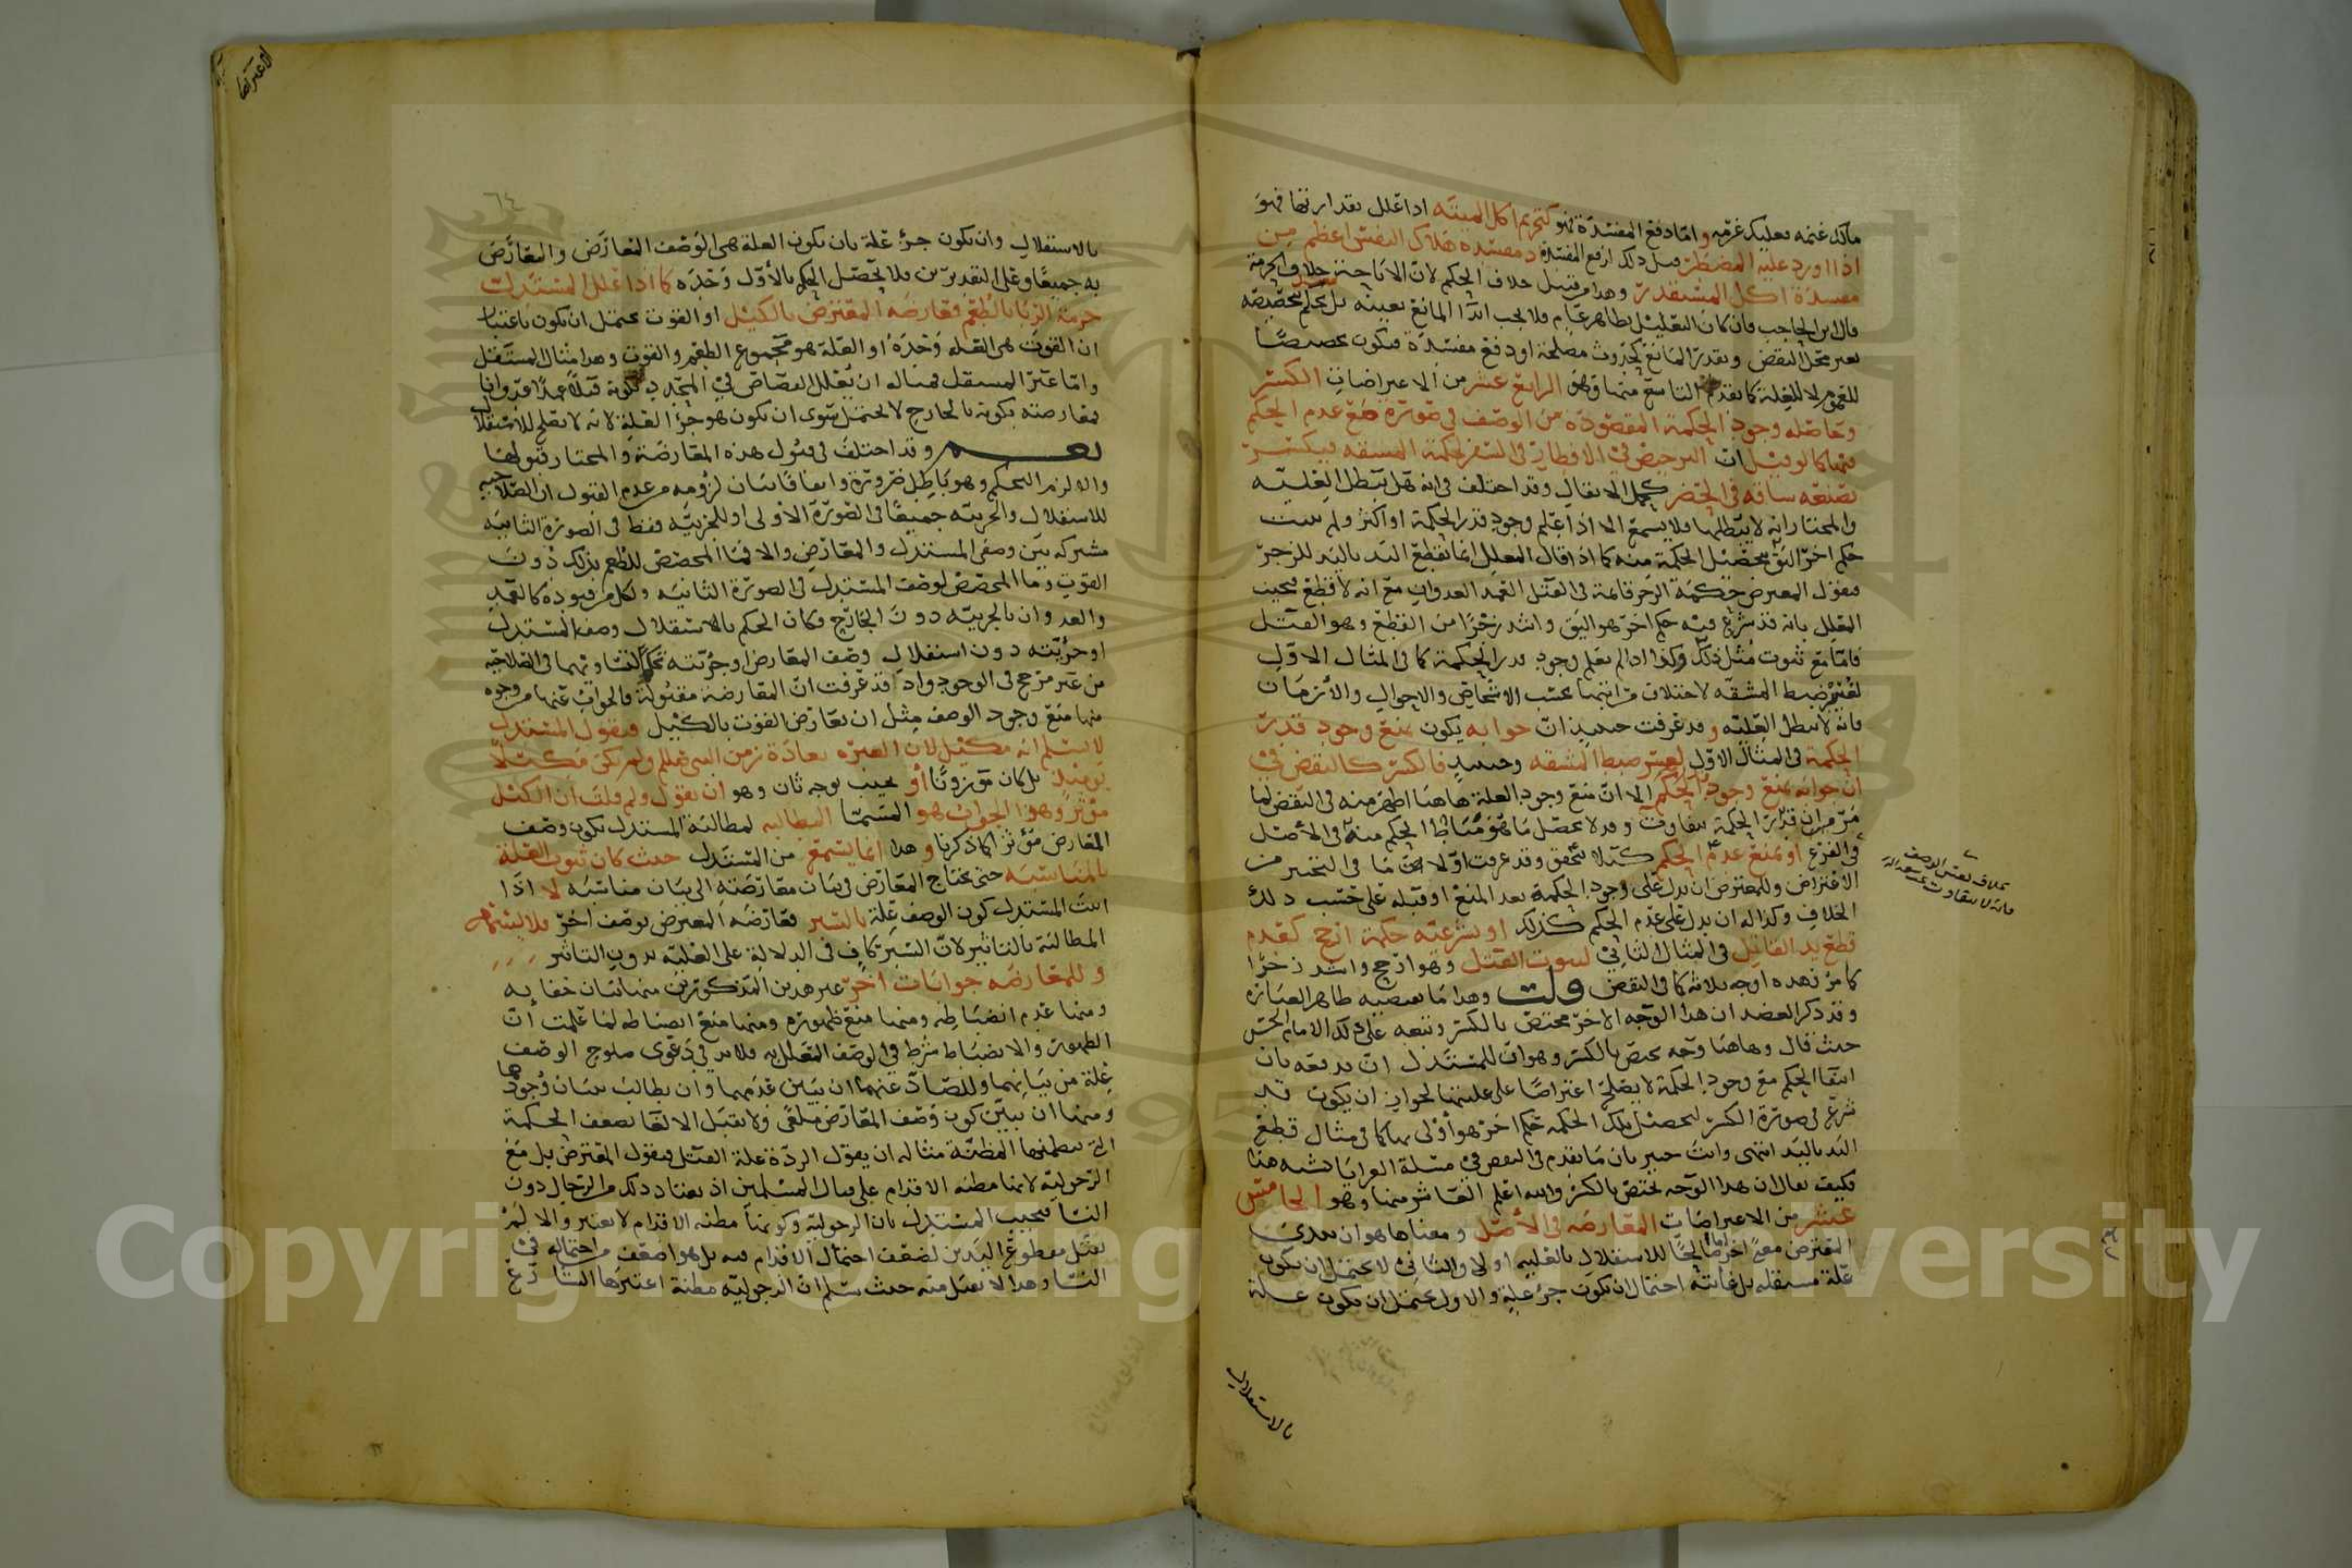 مالك غنمه فعليك غرمه واما دفع المفسدة فهو كتحريم اكل الميتة اذا علل بقذارتها فهو
اذا اورد عليه المضطر قيل ذلك لرفع المفسدة مفسدة هلاك النفس اعظم من
مفسدة اكل المستقذر وهذا خلاف الحكم لان الاباحة خلاف الحرمة
قال ابن الحاجب فان كان التعليل بظاهر عام فلا يجب ابدا المانع بعينه بل يحكم بتخصيصه
بغير محل النقض وبقدر المانع كحدوث مصلحة او دفع مفسدة فيكون تخصيصا
للعموم لا للعلة كما تقدم التاسع منها وهو الرابع عشر من الاعتراضات الكسر
وحاصله وجود الحكمة المقصودة من الوصف في صورة مع عدم الحكم
فيها كما لو قيل ان الترخيص في الافطار في السفر لحكمة المشقة فيكسر
بصنعة شاقة في الحضر كحمل الاثقال وقد اختلف في انه هل تبطل العلية
والمختار انه لا يبطلها ولا يسمع الا اذا علم وجود قدر الحكمة او اكثر ولم يثبت
حكم اخر اليق بتحصيل الحكمة منه كما اذا قال المعلل انما تقطع اليد باليد للزجر
فيقول المعترض حكمة الزجر قائمة في القتل العمد العدوان مع انه لا قطع فيجيب
المعلل بانه قد شرع فيه حكم اخر هو اليق واشد زجرا من القطع وهو القتل
فاما مع ثبوت مثل ذلك وكذا اذا لم يعلم وجود قدر الحكمة كما في المثال الاول
لعسر ضبط المشقة لاختلاف مراتبها بحسب الاشخاص والاحوال والازمان
فانه لا تبطل العلية وقد عرفت حينئذ ان جوابه يكون بمنع وجود قدر
الحكمة في المثال الاول لعسر ضبط المشقة وحينئذ فالكسر كالنقض في
ان جوابه بمنع وجود الحكم الا ان منع وجود العلة هاهنا اظهر منه في النقض لما
مر من ان قدر الحكمة يتفاوت وقد لا يحصل ما هو مناط الحكم منه في الاصل
في الفرع او بمنع عدم الحكم كيلا يتحقق وقد عرفت اولا في التخيير من
الاعتراض وللمعترض ان يدل على وجود الحكمة بعد المنع او قبله على حسب ذلك
الخلاف وكذا له ان يدل على عدم الحكم كذلك او بشرعية حكمة ارجح كعدم
قطع يد القاتل في المثال الثاني لثبوت القتل وهو ارجح واشد زجرا
كما مر فهذه اوجه ثلاثة كما في النقض قلت وهذا ما يقتضيه ظاهر العبارة
وقد ذكر العضد ان هذا الوجه الاخر مختص بالكسر وتبعه على ذلك الامام الحسن
حيث قال وهاهنا وجه يختص بالكسر وهو ان للمستدل ان يدفعه بان
انتفا الحكم مع وجود الحكمة لا يصلح اعتراضا على عليتها لجواز ان يكون قد
شرع في صورة الكسر لتحصيل تلك الحكمة حكم اخر هو اولى بها كما في مثال قطع
اليد باليد انتهى وانت خبير بان ما تقدم في النقض في مسئلة العرايا يشبه هذا
فكيف يقال ان هذا الوجه يختص بالكسر والله اعلم العاشر منها وهو الخامس
عشر من الاعتراضات المعارضة في الاصل ومعناها هو ان يبدي
المعترض معنى اخر اما صالحا للاستقلال بالعلية او لا والثاني لا يحتمل ان يكون
علة مستقلة بل غايته احتمال ان يكون جزء علة والاول يحتمل ان يكون علة
بخلاف نفس الوصف
فانه لا يتفاوت
بالاستقلال
٦٤
بالاستقلال وان يكون جزء علة بان يكون العلة هي الوصف المعارض والمعارض
به جميعا وعلى التقديرين فلا يحصل الحكم بالاول وحده كما اذا علل المستدل
حرمة الربا بالطعم فعارضه المعترض بالكيل او القوت يحتمل ان يكون باعتبار
ان القوت هي العلة وحده او العلة هو مجموع الطعم والقوت وهذا مثال المستقل
واما غير المستقل فمثاله ان يعلل القصاص في المحدد بكونه قتلا عمدا عدوانا
فمعارضته بكونه بالجارح لا يحتمل سوى ان يكون هو جزء العلة لانه لا يصلح للاستقلال
نعم وقد اختلف في قبول هذه المعارضة والمختار قبولها
والا لزم التحكم وهو باطل ضرورة واتفاقا بيان لزومه من عدم القبول ان الصلاحية
للاستقلال والجزئية جميعا في الصورة الاولى او للجزئية فقط في الصورة الثانية
مشتركة بين وصفي المستدل والمعارض والا فما المخصص للطعم بذلك دون
القوت وما المخصص لوصف المستدل في الصورة الثانية ولكل من قيوده كالعمد
والعدوان بالجزئية دون الجارح فكان الحكم بالاستقلال وصف المستدل
او جزئيته دون استقلال وصف المعارض او جزئيته تحكما لتساويهما في الصلاحية
من غير مرجح في الوجود واذ قد عرفت ان المعارضة مقبولة فالجواب عنها من وجوه
منها منع وجود الوصف مثل ان يعارض القوت بالكيل فيقول المستدل
لا نسلم انه مكيل لان العبرة بعادة زمن النبي صلعم ولم يكن مكيلا
يومئذ بل كان موزونا او يجيب بوجه ثان وهو ان يقول ولم قلت ان الكيل
مؤثر وهذا الجواب هو المسما المطالبة لمطالبة المستدل بكون وصف
المعارض مؤثرا كما ذكرنا وهذا انما يسمع من المستدل حيث كان ثبوت العلة
بالمناسبة حتى يحتاج المعارض في بيان معارضته الى بيان مناسبة لا اذا
اثبت المستدل كون الوصف علة بالسبر فعارضه المعترض بوصف اخر فلا يسمع
المطالبة بالتاثير لان السبر كاف في الدلالة على العلية بدون التاثير
وللمعارضة جوابات اخر غير هذين المذكورين منها بيان خفائه
ومنها عدم انضباطه ومنها منع ظهوره ومنها منع انضباطه لما علمت ان
الظهور والانضباط شرط في الوصف المعلل به فلا بد في دعوى صلوح الوصف
علة من بيانهما وللصاد عنهما ان يبين عدمهما وان يطالب ببيان وجودهما
ومنها ان يبين كون وصف المعارض ملغى ولا يقبل الالغا بضعف الحكمة
ان سلم المظنة مثاله ان يقول الردة علة القتل فيقول المعترض بل مع
الرجولية لانها مظنة الاقدام على قتال المسلمين اذ يعتاد ذلك من الرجال دون
النسا فيجيب المستدل بان الرجولية وكونها مظنة الاقدام لا يعتبر والا لم
يقتل مقطوع اليدين لضعف احتمال الاقدام فيه بل هو اضعف من احتماله في
النسا وهذا لا يقبل منه حيث سلم ان الرجولية مظنة اعتبرها الشارع
Copyright © King Saud University